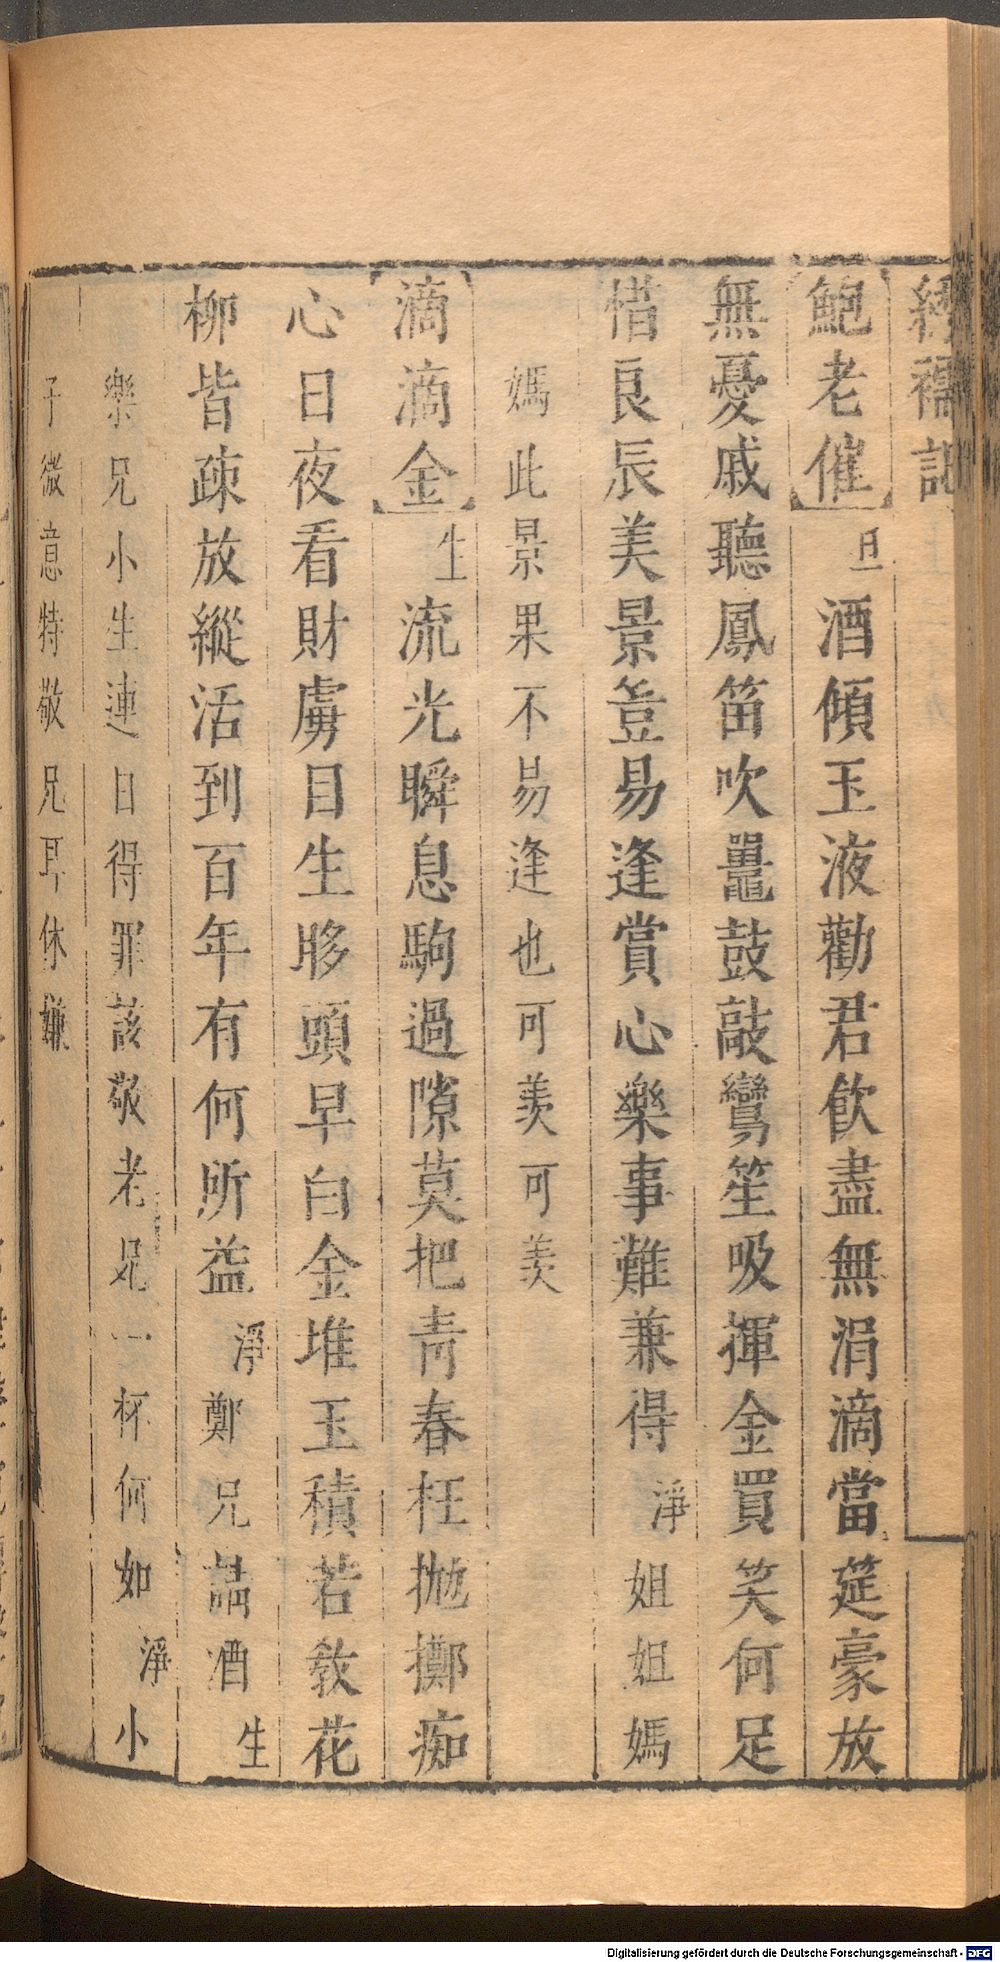 繡襦記
鮑老催旦酒傾玉液勸君飮盡無涓滴當筵豪放
無憂戚聽鳳笛吹鼍鼓敲鸞笙吸揮金買笑何足
惜良辰美景豈易逢賞心樂事難兼得淨姐姐媽
媽此景果不易逢也可羨可羨
滴滴金生流光瞬息駒過隙莫把靑春枉拋擲痴
心日夜看財虜目生眵頭早白金堆玉積若教花
柳皆疎放縱活到百年有何所益淨鄭兄請酒生
樂兄小生連日得罪該敬老兄一杯何如淨小
子微意特敬兄耳休嫌
Digitalisierung gefördert durch die Deutsche Forschungsgemeinschaft - DFG